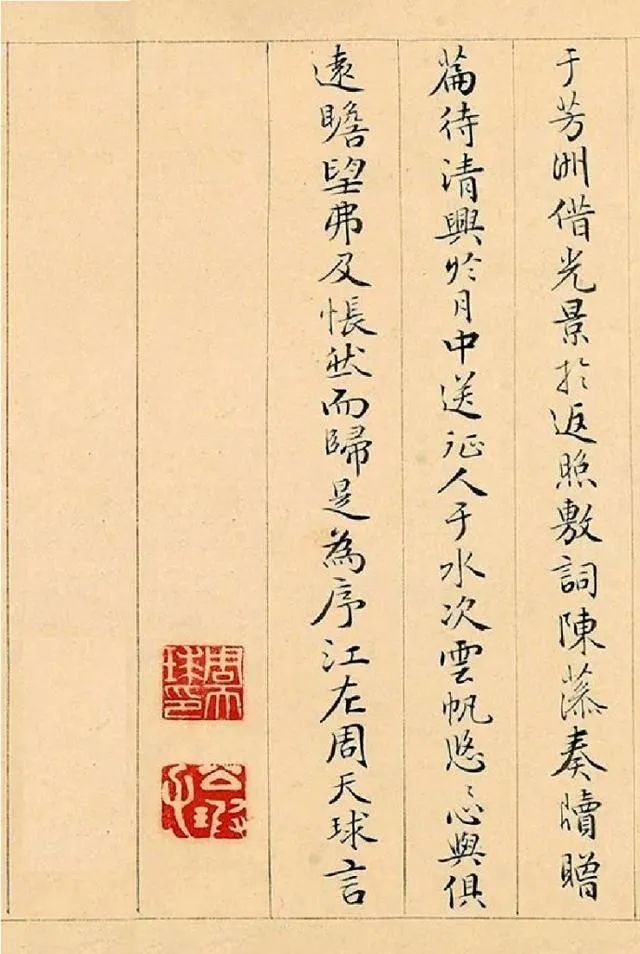 于芳洲借光景於返照敷詞陳蓀奏牘贈
篇待清興於月中送征人于水次雲帆悠心與俱
遠瞻望弗及悵然而歸是為序江左周天球言
周天球印
公瑕